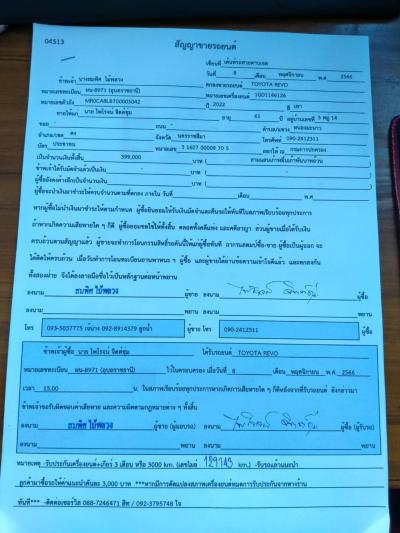 04513
สัญญาขายรถยนต์
เขียนที่ เต็นท์รถสายตาเอส
วันที่ 8 เดือน พฤศจิกายน พ.ศ 2566
ข้าพเจ้า นางสมพิศ ไม้พลวง ตกลงขายรถยนต์ TOYOTA REVO
หมายเลขทะเบียน ผน-8971 (อุบลราชธานี) หมายเลขเครื่องยนต์ 1GD1146126
หมายเลขตัวถัง MR0CA8LB700005042 ปี 2022 สี เทา
ขายให้แก่ นาย ไพโรจน์ จิตต์ชุ่ม อายุ 61 อยู่บ้านเลขที่ 5 หมู่ 14
ซอย - ถนน - ตำบล/แขวง หนองมะนาว
อำเภอ/เขต คง จังหวัด นครราชสีมา โทรศัพท์ 090-2412311
บัตร ประชาชน หมายเลข 3 1607 00009 70 5 ออกให้ ณ กรมการปกครอง
เป็นจำนวนเงินทั้งสิ้น 399,000 บาท ( สามแสนเก้าหมื่นเก้าพันบาทถ้วน )
ข้าพเจ้าได้รับมัดจำแล้วเป็นเงิน - บาท ( - )
ผู้ซื้อยังคงค้างอีกเป็นจำนวนเงิน - บาท ( - )
ผู้ซื้อจะนำเงินมาชำระให้ครบจำนวนตามที่ตกลง ภายใน วันที่ เดือน พ.ศ
หากผู้ซื้อไม่นำเงินมาชำระให้ตามกำหนด ผู้ซื้อยินยอมให้รับเงินมัดจำและคืนรถให้ทันทีในสภาพเรียบร้อยทุกประการ
ถ้าหากเกิดความเสียหายใด ๆ ก็ดี ผู้ซื้อยอมชดใช้ให้ทั้งสิ้น ตลอดทั้งคดีแพ่ง และคดีอาญา ส่วนผู้ขายเมื่อได้รับเงิน
ครบถ้วนตามสัญญาแล้ว ผู้ขายจะทำการโอนกรรมสิทธิ์รถคันนี้ให้แก่ผู้ซื้อทันที
ทั้งสองฝ่าย จึงได้ลงลายมือชื่อไว้เป็นหลักฐานต่อหน้าพยาน
ลงนาม สมพิศ ไม้พลวง ผู้ขาย ลงนาม ผู้ซื้อ
ลงนาม พยาน ลงนาม พยาน
โทร 093-5037775 เจ๊นาง 092-8914379 ลูกน้ำ ผู้ขาย โทร 090-2412311 ผู้ซื้อ
ข้าพเจ้าผู้ซื้อ นาย ไพโรจน์ จิตต์ชุ่ม ได้รับรถยนต์ TOYOTA REVO
หมายเลขทะเบียน ผน-8971 (อุบลราชธานี) ไว้ในครอบครอง เมื่อวันที่ 8 เดือน พฤศจิกายน พ.ศ 2566
เวลา 15.00 น. ในสภาพเรียบร้อยทุกประการหากเกิดการเสียหายใด ๆ ก็ดีหลังจากที่รับรถยนต์ ดังกล่าวมา
ข้าพเจ้าขอรับผิดชอบค่าเสียหาย และความผิดตามกฎหมายต่าง ๆ ทั้งสิ้น
ลงนาม สมพิศ ไม้พลวง ผู้ขาย (ผู้มอบรถ) ลงนาม ผู้ซื้อ (ผู้รับรถ)
ลงนาม พยาน ลงนาม พยาน
หมายเหตุ -รับประกันเครื่องยนต์+เกียร์ 3 เดือน หรือ 3000 km. (เลขไมล์ 129143 km.) -รับรถแล้วแนะนำ
ลูกค้ามาซื้อรถให้ค่าแนะนำคันละ 3,000 บาท ***หากมีการดัดแปลงสภาพเครื่องยนต์หมดการรับประกันจากทางร้าน
ทันที*** -ติดต่อเซอร์วิส 088-7246471 สิท / 092-3795748 ใจ